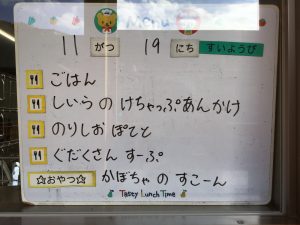 11 がつ 19 にち すいようび
ごはん
しいらの けちゃっぷあんかけ
のりしお ぽてと
ぐだくさん すーぷ
☆おやつ☆ かぼちゃ の すこーん
Tasty Lunch Time